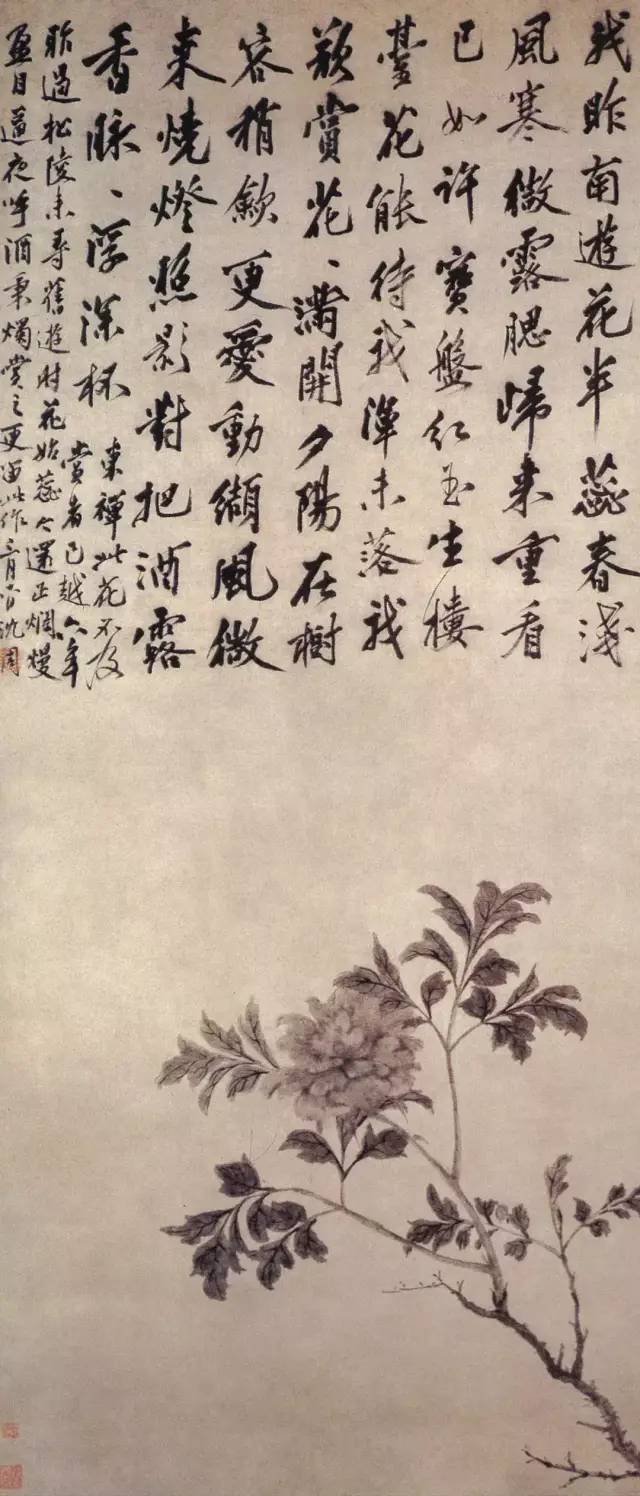 我昨南遊花半蕊春淺
風寒微露腮歸來重看
已如許寶盤紅玉生樓
臺花能待我渾未落我
欲賞花、滿開夕陽在樹
容稍歛更愛動纈風微
來燒燈照影對把酒露
香脉、浮深杯
東禪此花不及
賞者已越六年
昨過松陵未尋舊遊時花始蕊今還正爛熳
盈目夜呼酒秉燭賞之更此作沈周